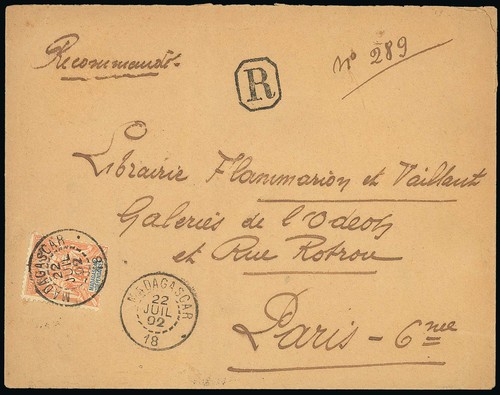 Recommandé
R
no 289
Librairie Flammarion et Vaillant
Galeries de l'Odeon
et Rue Rotrou
Paris - 6me
MADAGASCAR
22
JUIL
02
MADAGASCAR
22
JUIL
02
18